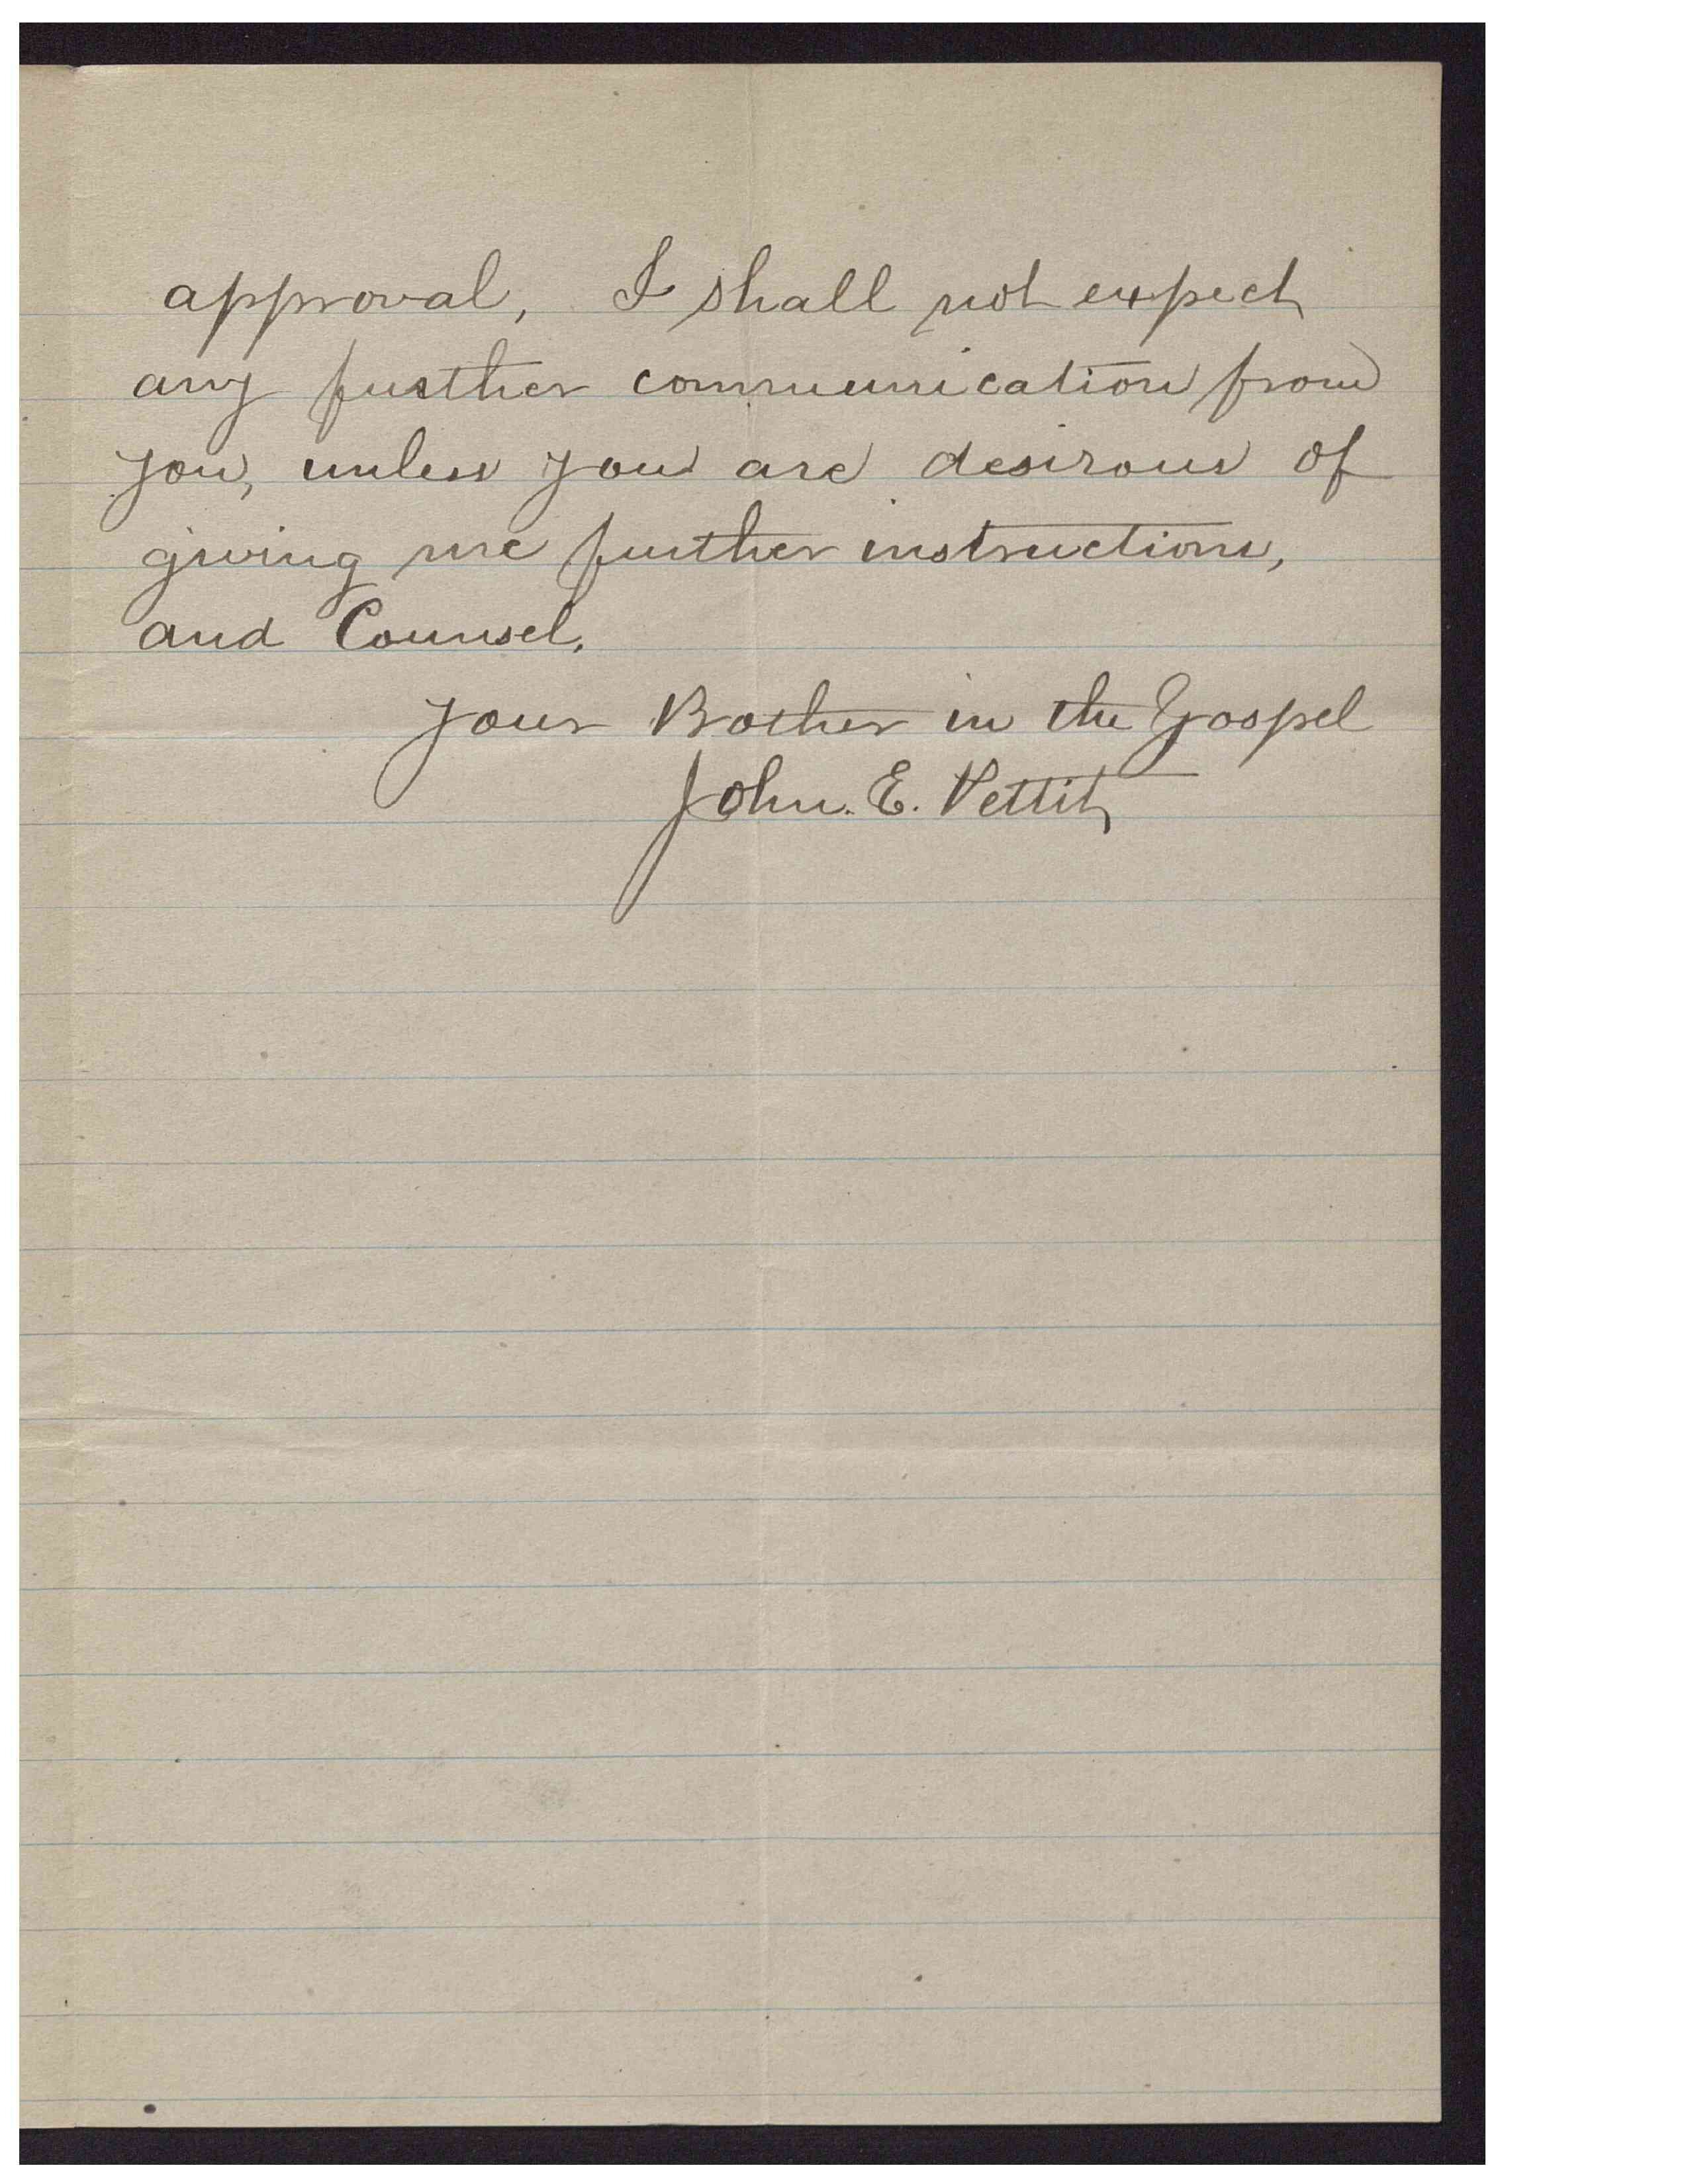 approval, I shall not expect
any further communication from
you, unless you are desirous of
giving me further instructions,
and Counsel.
your Brother in the Gospel
John. E. Pettit